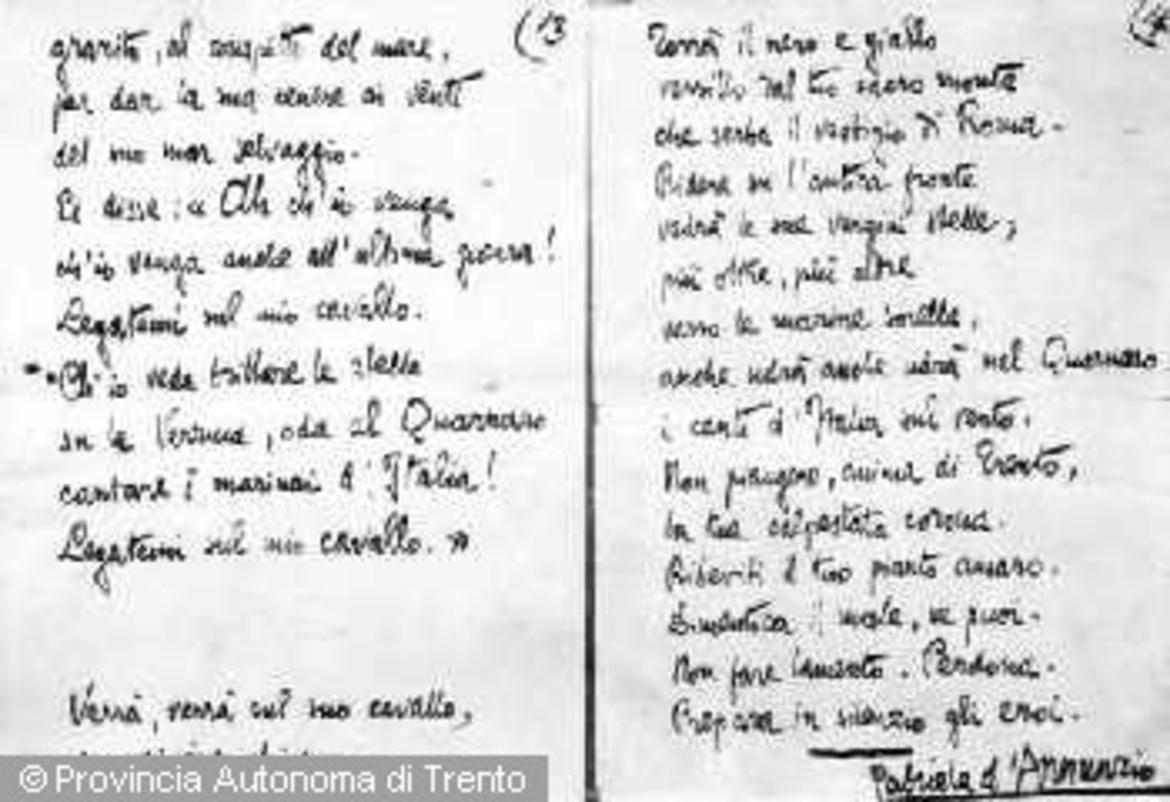 (13
granito, al cospetto del mare,
per dar la sua cenere ai venti
del suo mar selvaggio.
Ei disse: « Oh ch'io venga
ch'io venga anche all'ultima guerra!
Legatemi sul mio cavallo.
Ch'io veda brillare le stelle
su la Verruca, oda al Quarnaro
cantare i marinai d'Italia!
Legatemi sul mio cavallo. »
Verrà, verrà sul suo cavallo,
Torrà il nero e giallo
vessillo dal tuo sacro monte
che serba il vestigio di Roma.
Ridere su l'antica fronte
vedrà le sue vergini stelle,
più oltre, più oltre
verso le marine sorelle,
anche udrà anche udrà nel Quarnaro
i canti d'Italia sul vento.
Non piangere, anima di Trento,
la tua calpestata corona.
Ribeviti il tuo pianto amaro.
Dimentica il male, se puoi.
Non fare lamento. Perdona.
Prepara in silenzio gli eroi.
Gabriele d'Annunzio
© Provincia Autonoma di Trento